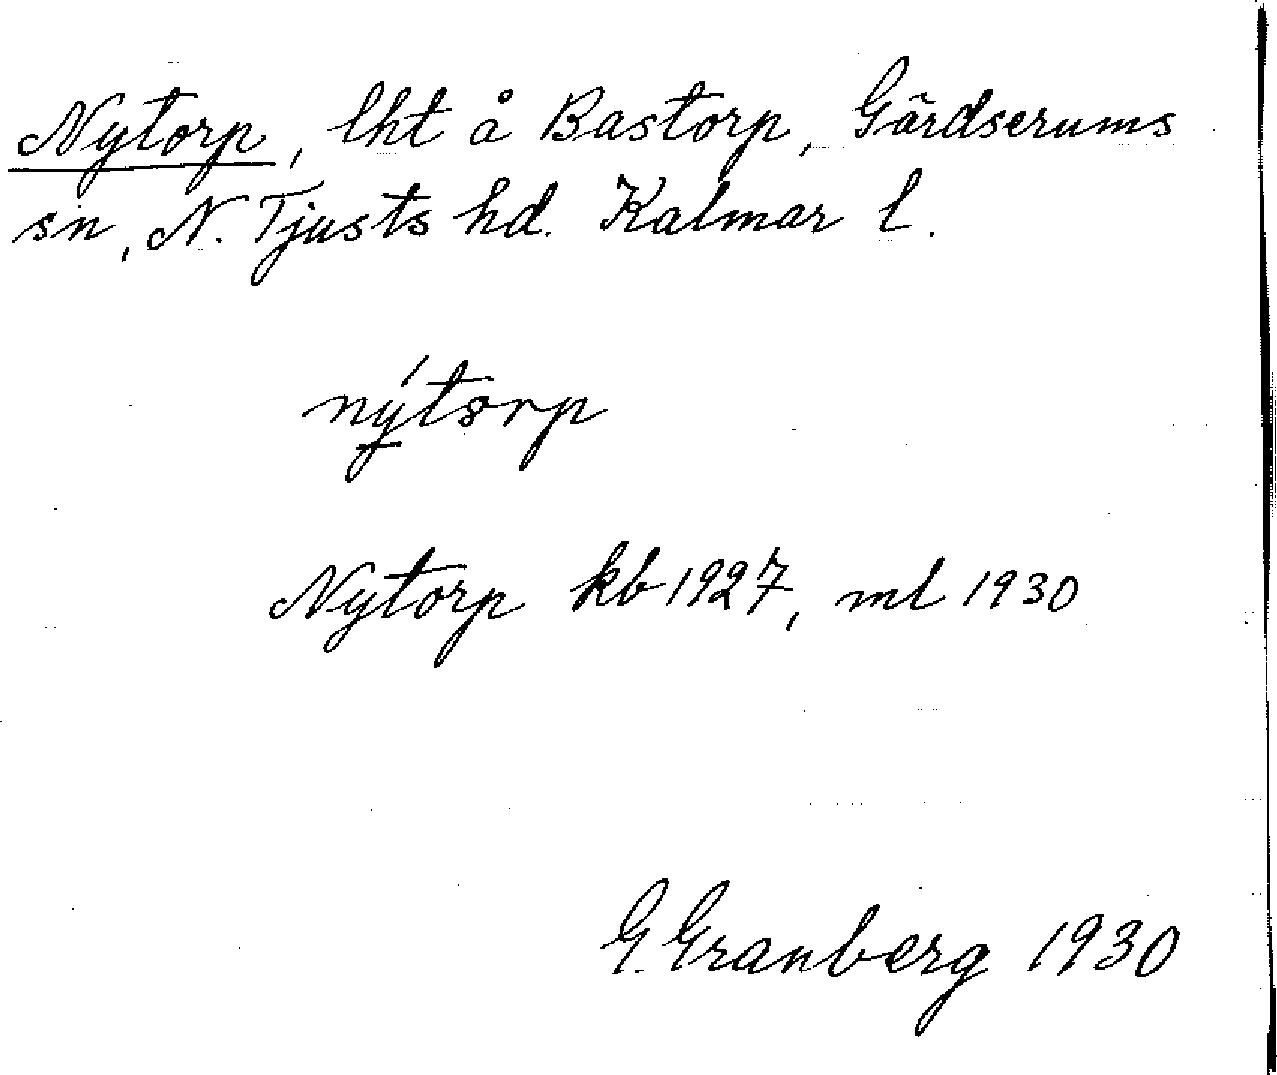 Nytorp, lht å Bastorp, Gärdserums
sn, N. Tjusts hd. Kalmar l.
nýtorp
Nytorp kb 1927, ml 1930
G. Granberg 1930